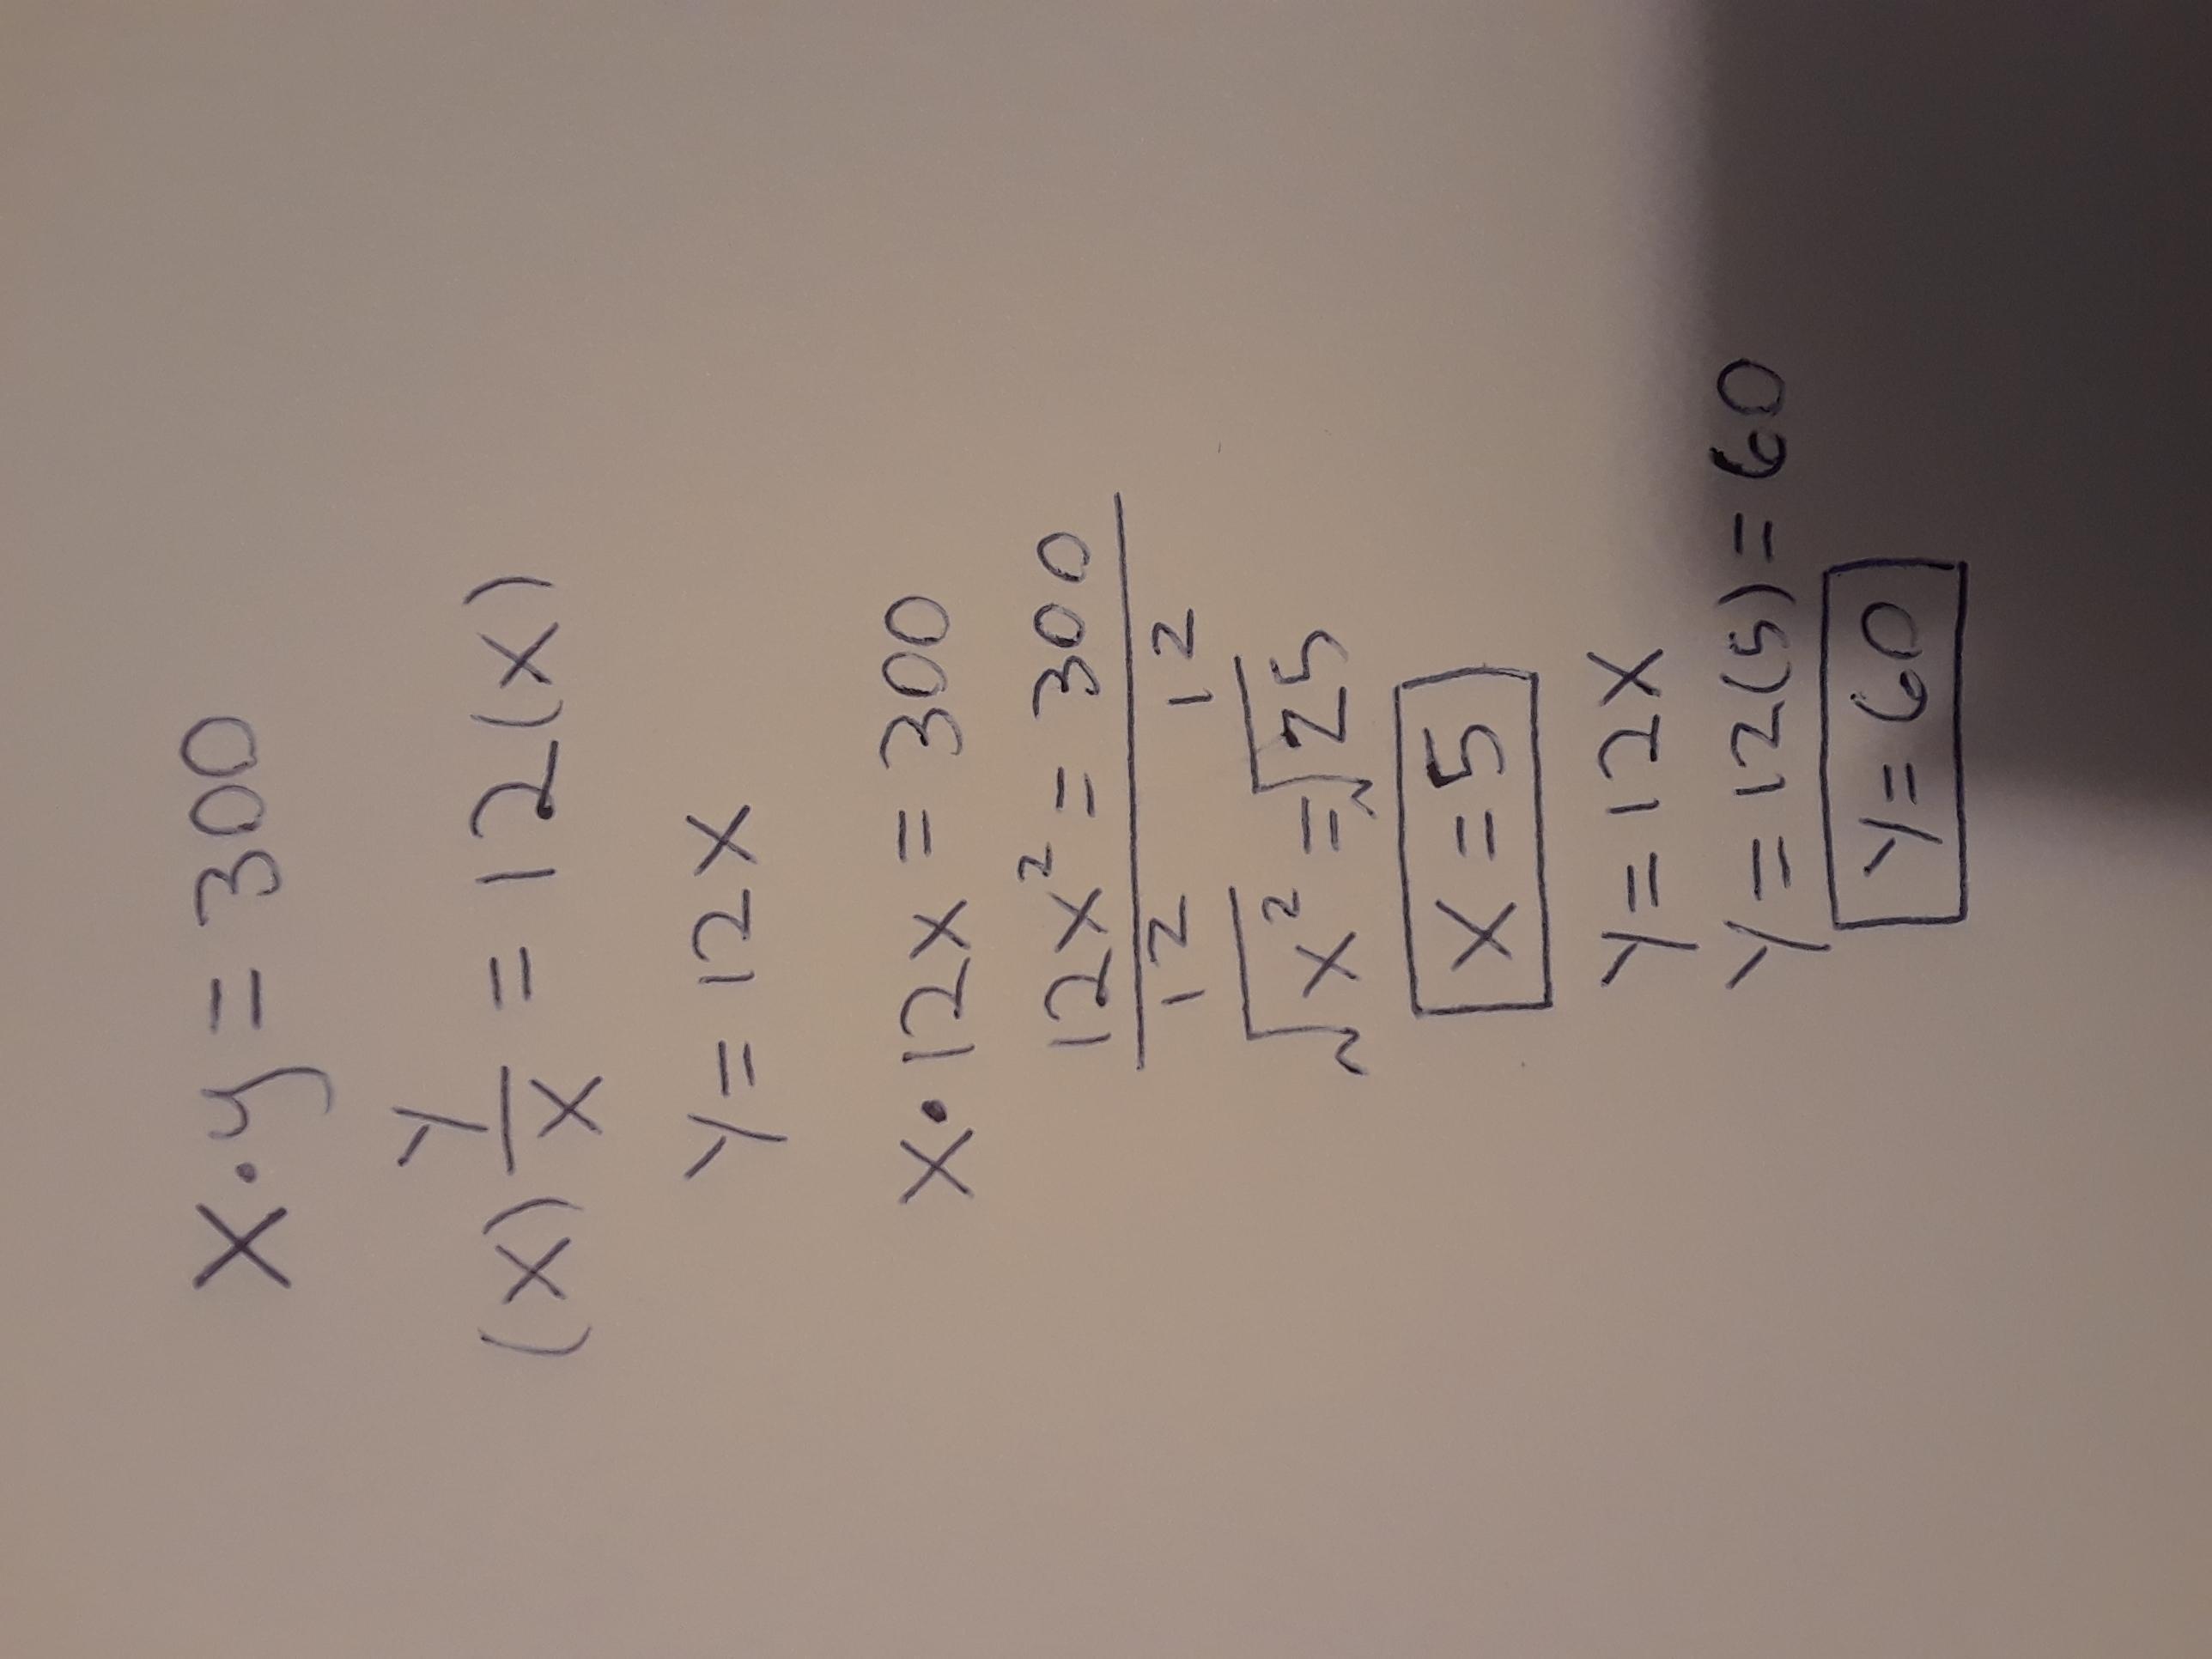 x·y = 300
(x) y/x = 12(x)
y = 12x
x·12x = 300
12x² = 300
12 12
√x² = √25
x = 5
y = 12x
y = 12(5) = 60
y = 60